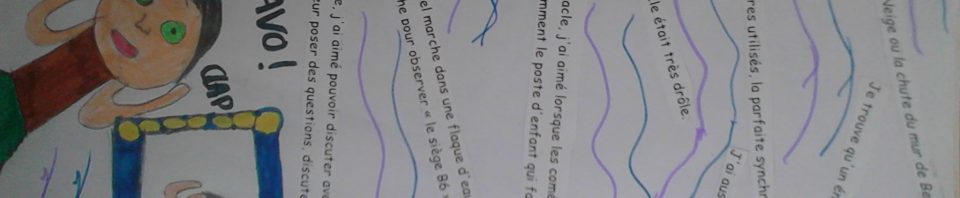 Neige ou la chute du mur de Be
Je trouve qu'un én
res utilisés, la parfaite synchr
J'ai aus
le était très drôle.
acle, j'ai aimé lorsque les comé
mment le poste d'enfant qui fo
el marche dans une flaque d'eau
he pour observer « le siège 86 »
e, j'ai aimé pouvoir discuter ave
ur poser des questions, discute
AVO !
CLAP